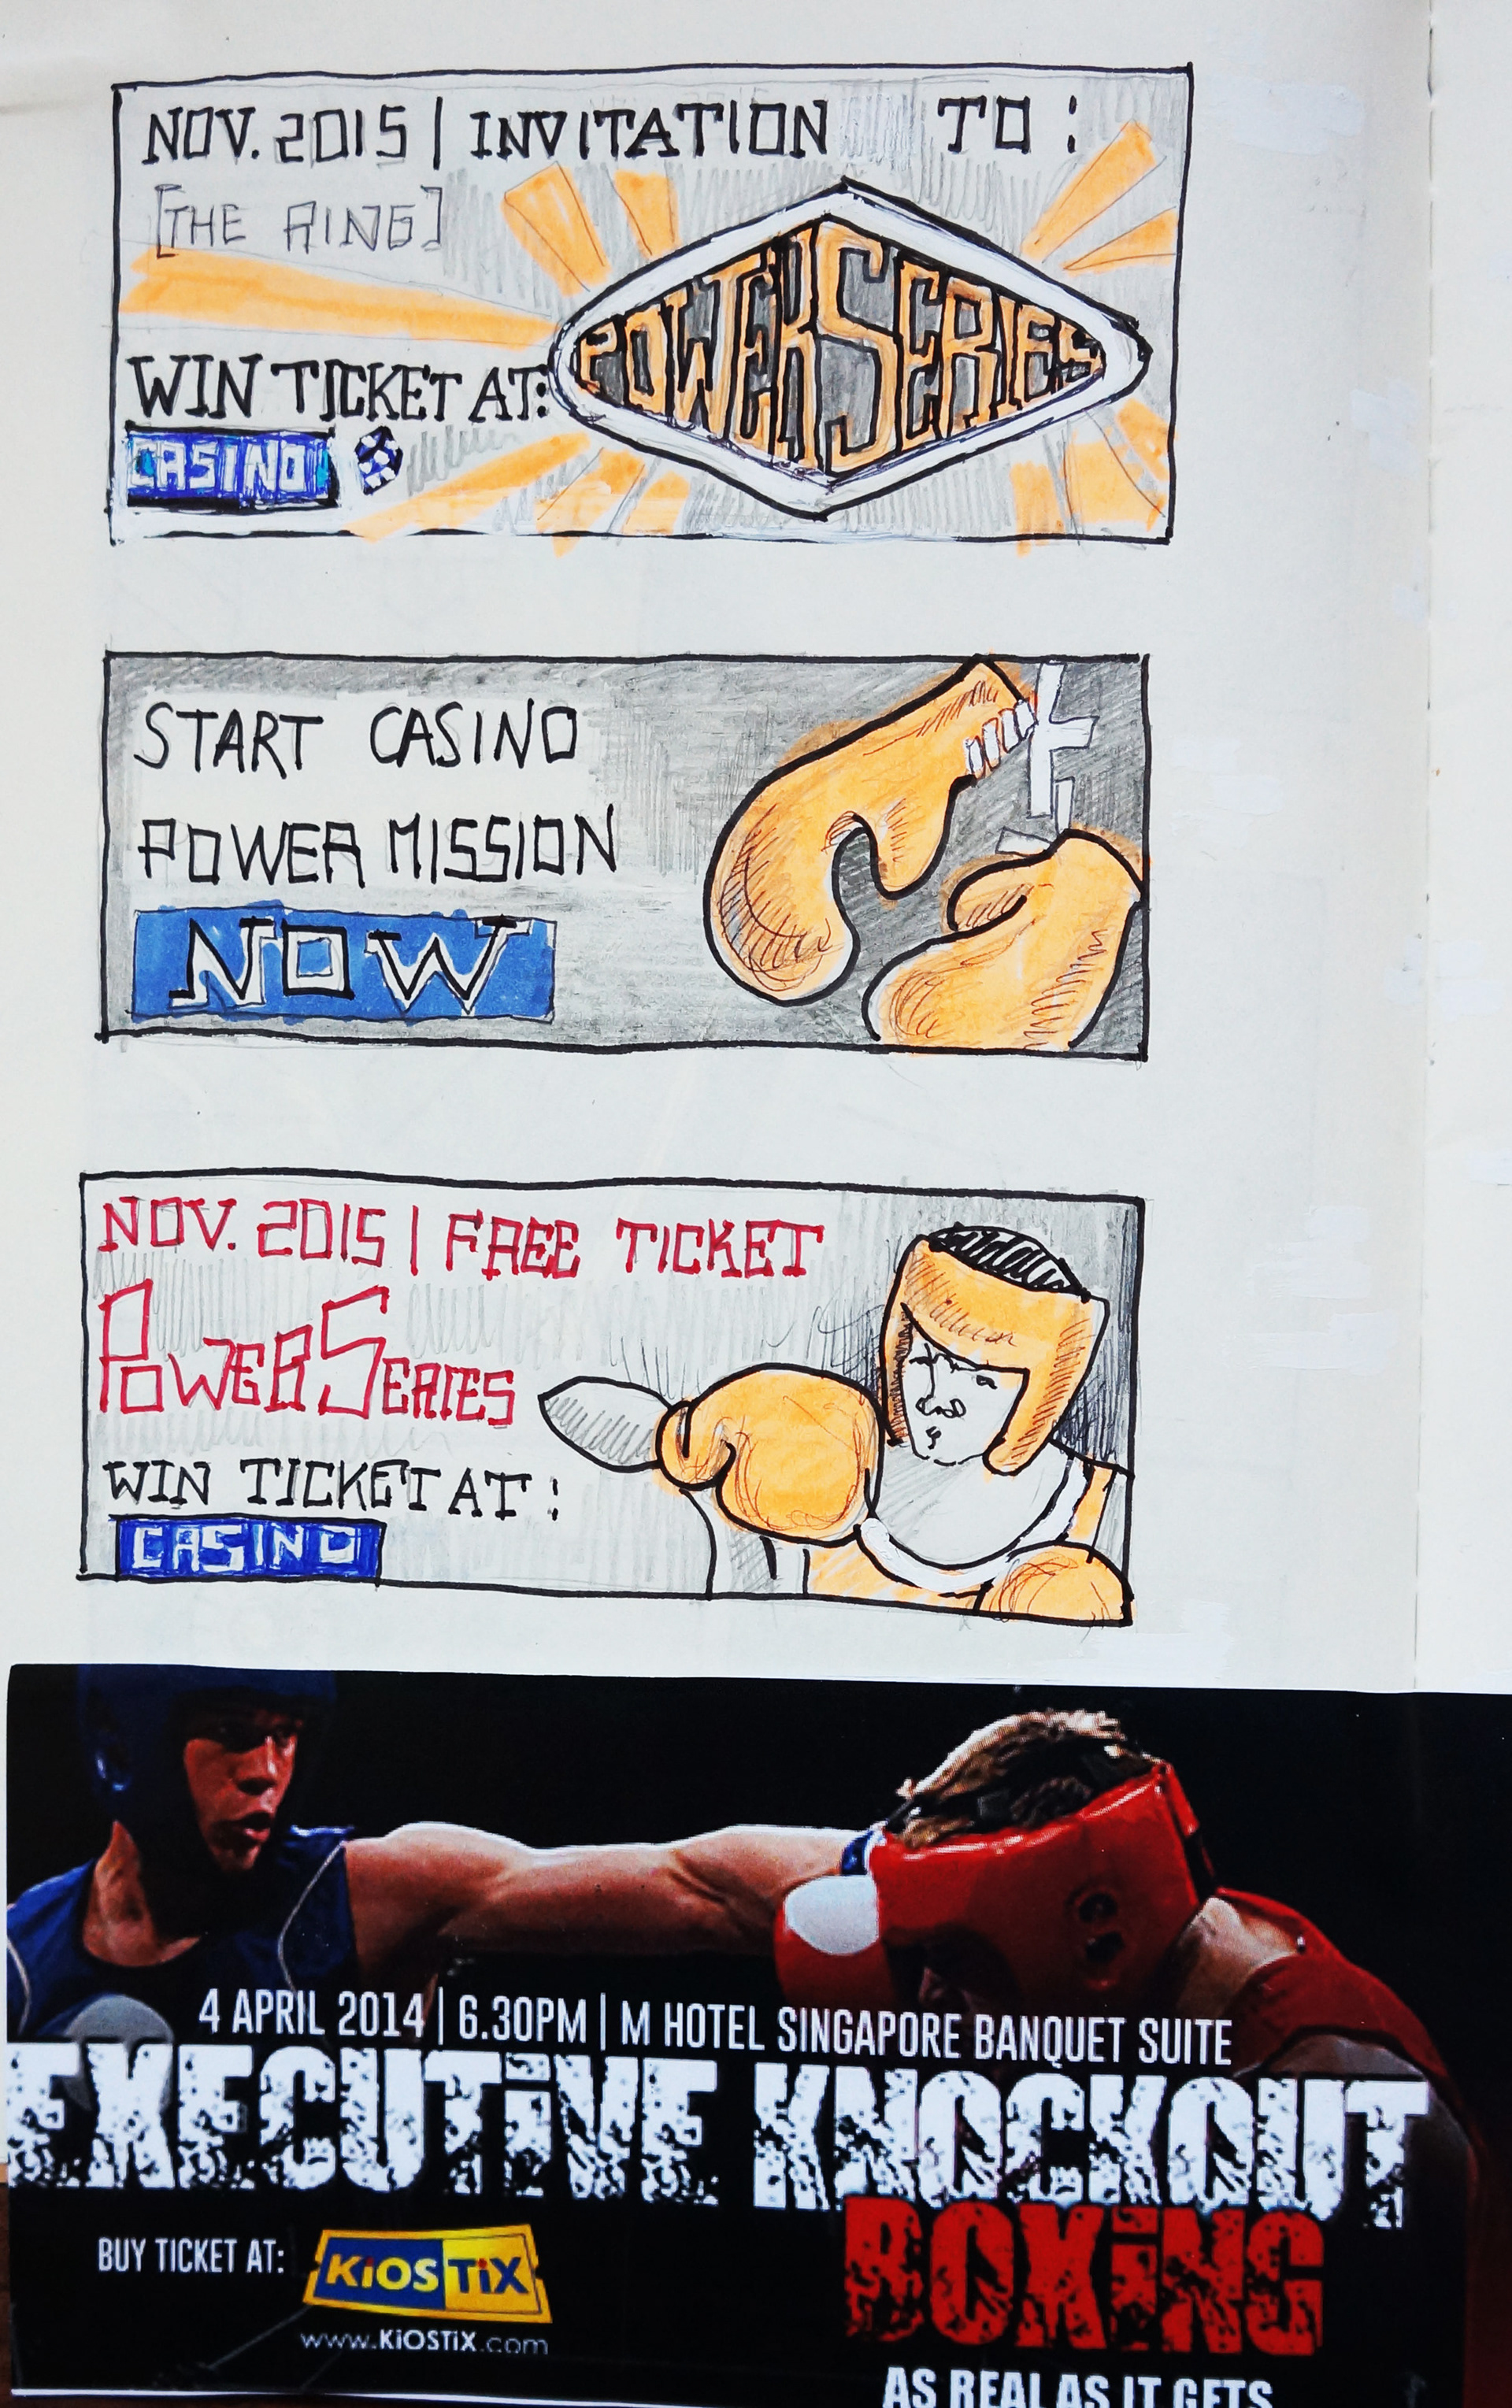 NOV. 2015 | INVITATION TO:
[THE RING]
POWER SERIES
WIN TICKET AT:
CASINO
START CASINO
POWER MISSION
NOW
NOV. 2015 | FREE TICKET
POWER SERIES
WIN TICKET AT:
CASINO
4 APRIL 2014 | 6.30PM | M HOTEL SINGAPORE BANQUET SUITE
EXECUTiVE KNOCKOUT
BOXiNG
BUY TICKET AT:
KiOSTiX
www.KiOSTiX.com
AS REAL AS IT GETS